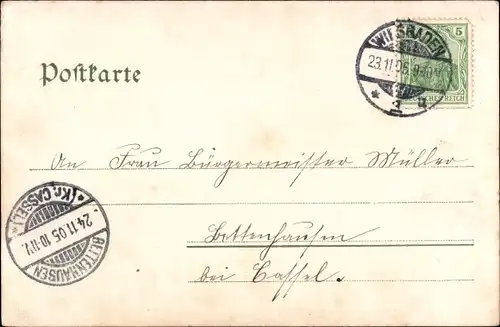 Postkarte
WIESBADEN
23.11.05. 9-10
5
DEUTSCHES REICH
An Frau Bürgermeister Müller
Bettenhausen
bei Cassel.
BETTENHAUSEN
24.11.05 10-11V.
(Kr. CASSEL)